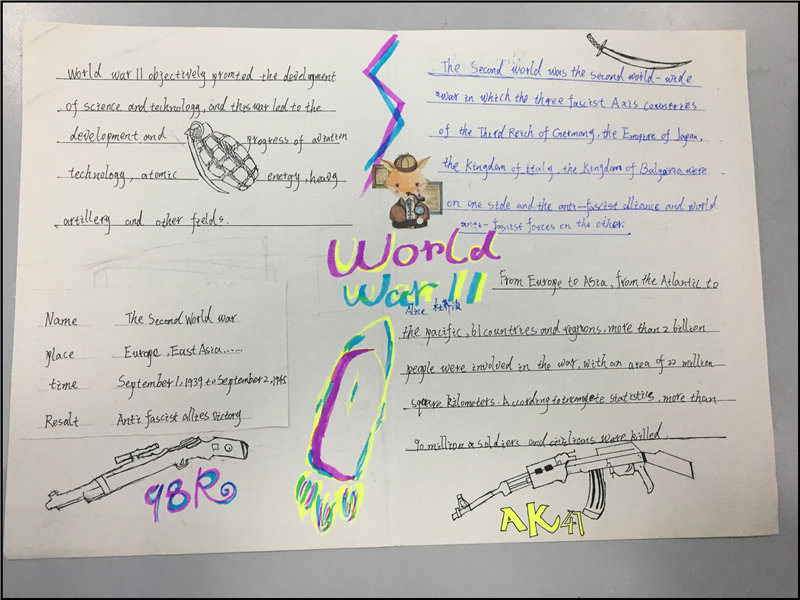 World war II objectively promted the develpment
of science and technology, and this war led to the
development and progress of aviation
technology, atomic energy, heavy
artillery and other fields.
The Second world was the second world-wide
war in which the three fascist Axis countries
of the Third Reich of Germany, the Empire of Japan,
the Kingdom of italy, the Kingdom of Bulgaria were
on one side and the anti-fascist alliance and world
anti-fascist forces on the other.
World
War II
Alice
From Europe to Asia, from the Atlantic to
the pacific, 61 countries and regions, more than 2 billion
people were involved in the war, with an area of 22 million
square kilometers. According to incomplete statistics, more than
90 million soldiers and civilians were killed.
Name The Second World war
place Europe, East Asia......
time September 1, 1939 to September 2, 1945
Result Anti fascist allies Victory
98K
AK47